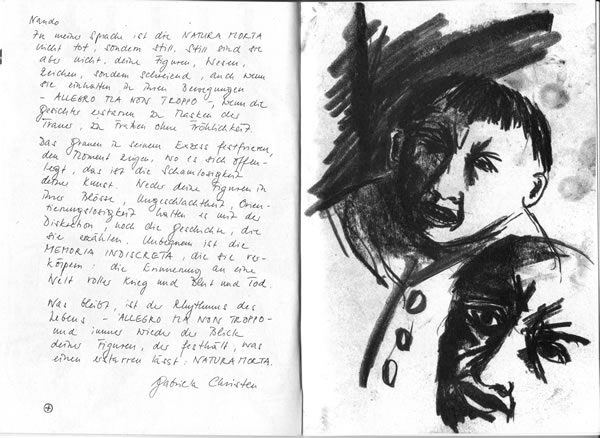 Nando
In meiner Sprache ist die NATURA MORTA
nicht tot, sondern still. Still sind sie
aber nicht, deine Figuren, Wesen,
Zeichen, sondern schreiend, auch wenn
sie einhalten in ihren Bewegungen
- ALLEGRO MA NON TROPPO -, wenn die
Gesichter erstarren zu Masken des
Trauer. Zu Fratzen ohne Fröhlichkeit.
Das Grauen in seinem Exzess festfrieren,
den Moment zeigen, wo es sich offen-
legt, das ist die Schamlosigkeit
deiner Kunst. Weder deine Figuren in
ihrer Blösse, Ungeschlachtheit, Orien-
tierungslosigkeit halten es mit der
Diskretion, noch die Geschichte, die
sie erzählen. Unbequem ist die
MEMORIA INDISCRETA, die sie ver-
körpern: die Erinnerung an eine
Welt voller Krieg und Blut und Tod.
Was bleibt, ist der Rhythmus des
Lebens - ALLEGRO MA NON TROPPO -
und immer wieder der Blick
deiner Figuren, der festhält, was
einen erstarren lässt: NATURA MORTA.
Gabriela Christen